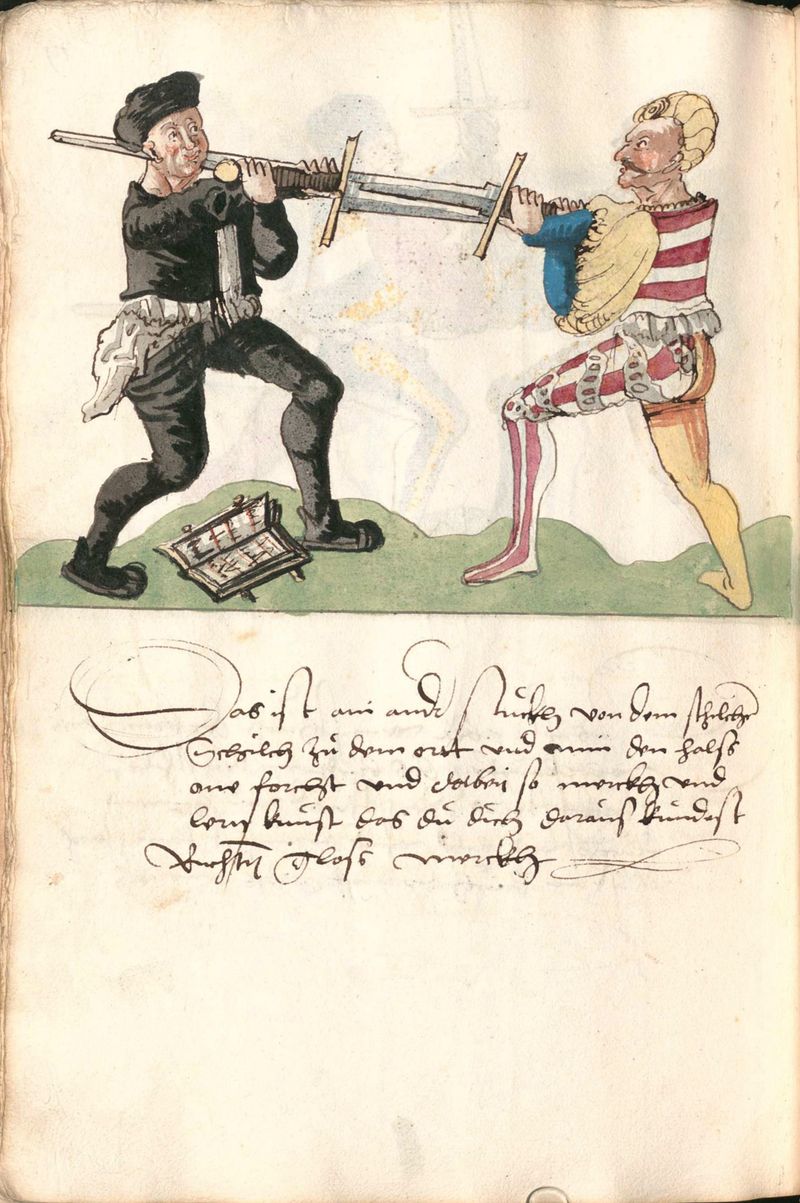 Das ist ain ander stuckh von dem schilher
Schilch zu dem ortt und nim den halss
one forcht und darbei so merckh und
lern kunst das du dich daraus kundest
Richten gloss merckh